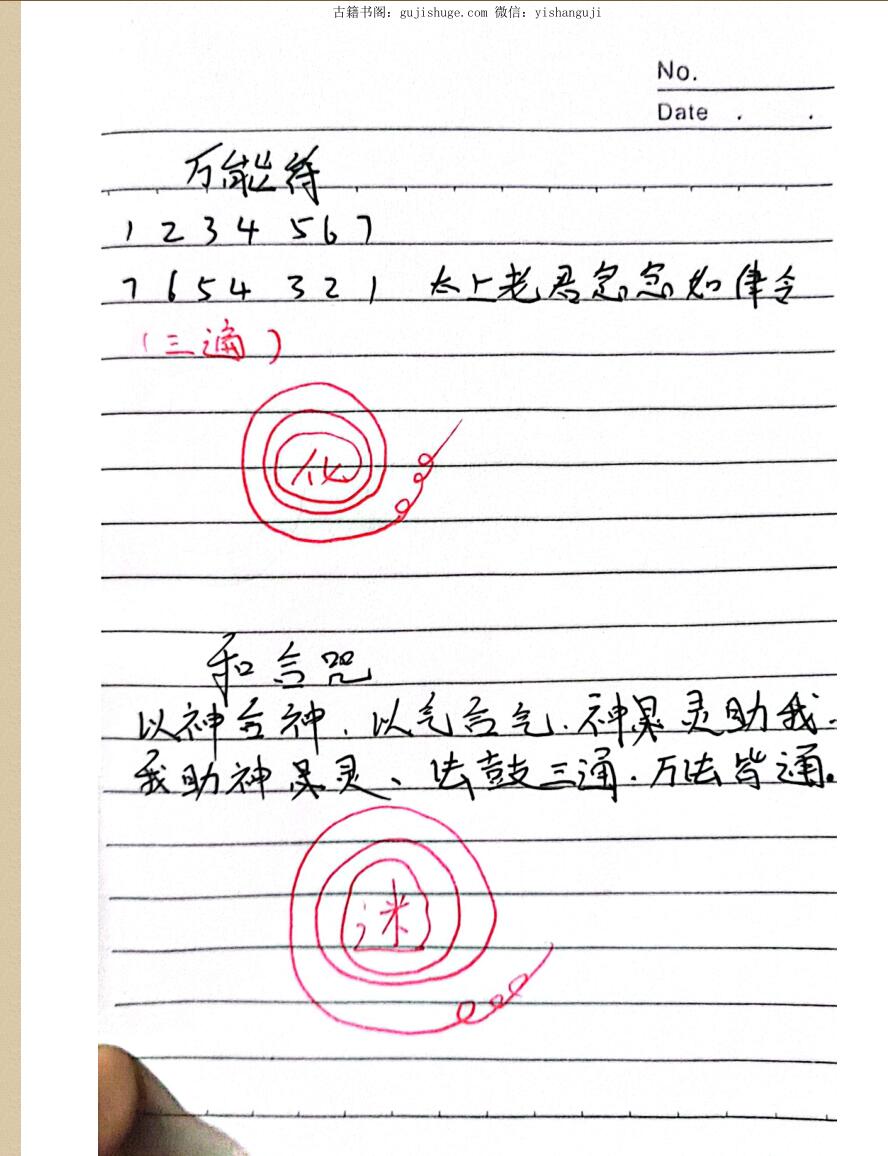 古籍书阁: gujishuge.com 微信: yishanguji
No.
Date . .
万能符
1 2 3 4 5 6 7
7 6 5 4 3 2 1 太上老君急急如律令
(三通)
化
和合咒
以神合神.以气合气.神灵助我.
我助神灵、法鼓三通.万法皆通。